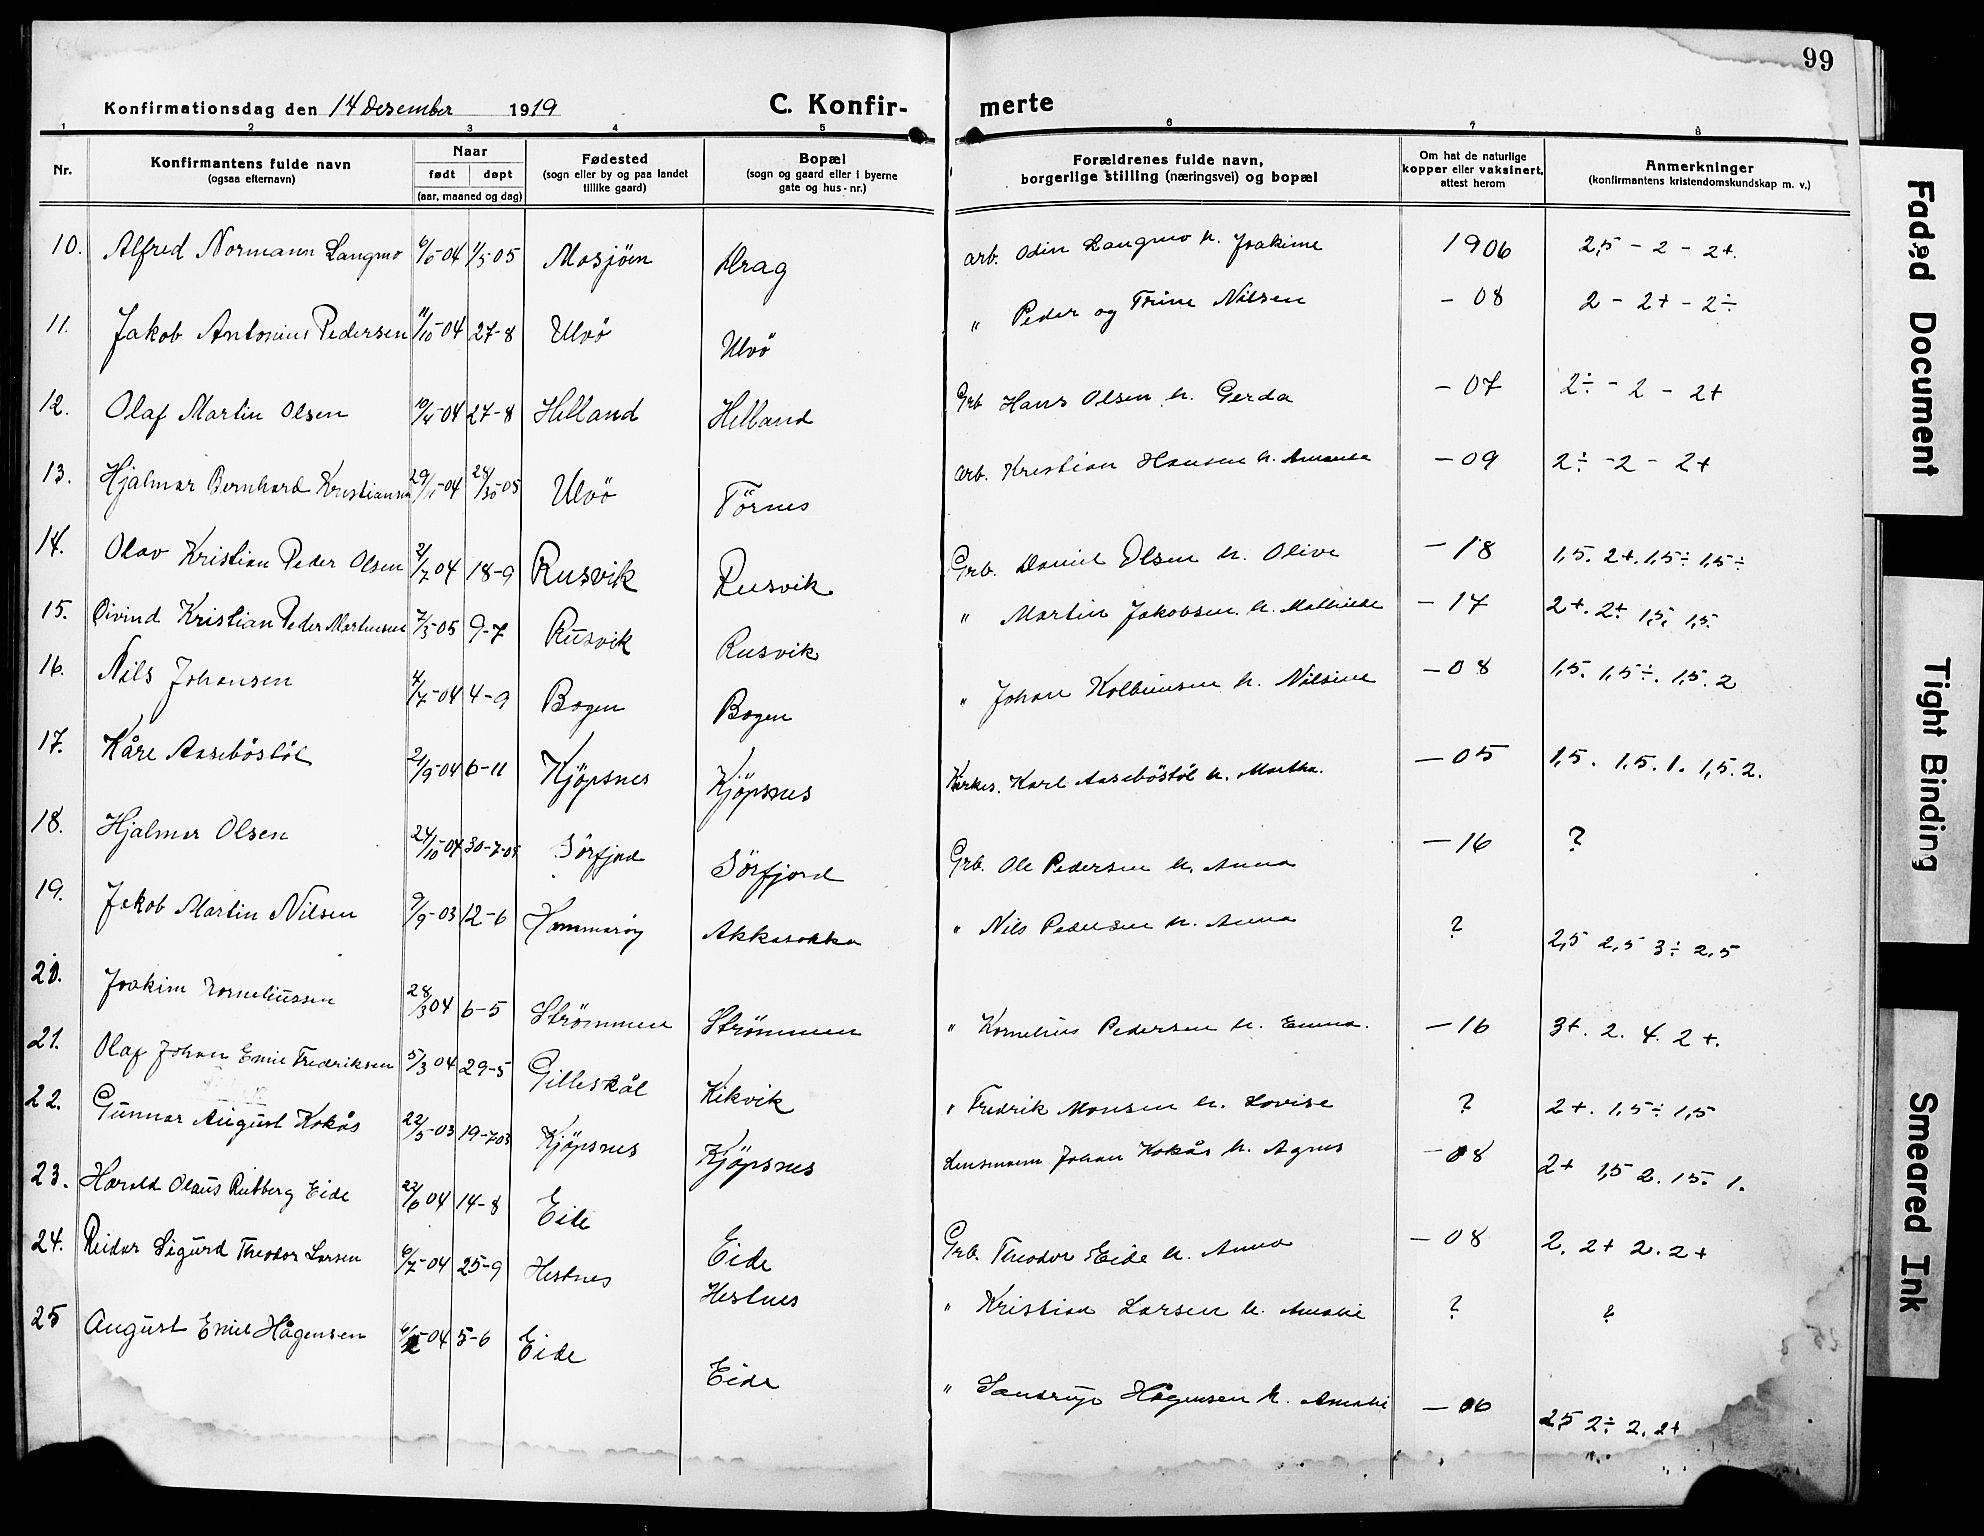 99
Konfirmationsdag den 14 desember 1919 C. Konfir- merte
1 2 3 4 5 6 7 8
Nr. Konfirmantens fulde navn (ogsaa efternavn) Naar født døpt (aar, maaned og dag) Fødested (sogn eller by og paa landet tillike gaard) Bopæl (sogn og gaard eller i byerne gate og hus-nr.) Forældrenes fulde navn, borgerlige stilling (næringsvei) og bopæl Om hat de naturlige kopper eller vaksinert, attest herom Anmerkninger (konfirmantens kristendomskundskap m. v.)
10. Alfred Normann Langmo 6/6-04 1/5 05 Mosjöen Drag arb. Odin Langmo h. Joakime 1906 2,5 - 2 - 2+.
11. Jakob Antonius Pedersen 11/10-04 27-8 Ulvö Ulvö " Peder og Trine Nilsen - 08 2 - 2+ - 2÷
12. Olaf Martin Olsen 27-8 Helland Helland Grb Hans Olsen h. Gerda - 07 2÷ - 2 - 2+
13. Hjalmar Bernhard Kristiansen Ulvö Törnes arb. Kristian Hansen h. Amanda - 09 2÷ - 2 - 2+
14. Olav Kristian Peder Olsen 2/7 04 18-9 Rusvik Rusvik Grb. Daniel Olsen h. Olive - 18 1,5. 2+. 1,5÷ 1,5÷
15. Oivind Kristian Peder Martinsen 7/5 05 9-7 Rusvik Rusvik " Martin Jakobsen h. Mathilde - 17 2+. 2+ 1,5. 1,5.
16. Nils Johansen 4/7-04 4-9 Bogen Bogen " Johan Kolbeinsen h. Nilsine - 08 1,5. 1,5÷. 1,5. 2
17. Kåre Aaseböstöl 2/9-04 6-11 Kjöpsnes Kjöpsnes Kirkes. Karl Aaseböstöl h. Martha. - 05 1,5. 1,5. 1. 1,5. 2.
18. Hjalmar Olsen 24/10-04 30-7-05 Sörfjord Sörfjord Grb. Ole Pedersen h. Anna - 16 ?
19. Jakob Martin Nilsen 9/9-03 12-6 Hammaröy Akkasokka " Nils Pedersen h. Anna ? 2,5 2,5 3÷ 2,5
20. Joakim Korneliussen 28/3 04 6-5 Strömmen Strömmen " Kornelius Pedersen h. Emma. - 16 3+. 2. 4. 2+.
21. Olaf Johan Emil Fredriksen 5/3 04 29-5 Gilleskål Kikvik " Fredrik Monsen h. Lovise ? 2+. 1,5÷ 1,5
22. Gunnar August Kokås 22/5-03 19-7 03 Kjöpsnes Kjöpsnes Lensmann Johan Kokås h. Agnes - 08 2+ 1,5 2. 1 5. 1.
23. Harald Olaus Rutberg Eide 22/6 04 14-8 Eide Eide Grb. Theodor Eide h. Anna - 08 2. 2+ 2. 2+
24. Reidar Sigurd Theodor Larsen 6/7-04 25-9 Hestnes Hestnes " Kristian Larsen h. Amalie ? ?
25 August Emil Hågensen 5-6 Eide Eide " Sandrup Hågensen h. Amalie - 06 2,5 2÷ 2. 2+
Faded Document
Tight Binding
Smeared Ink